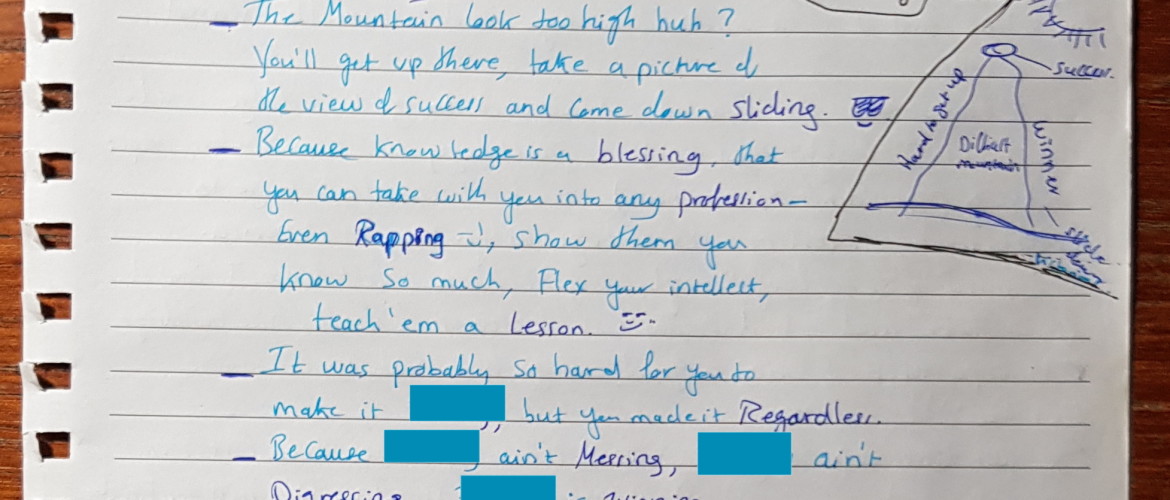 – The Mountain look too high huh ?
You'll get up there, take a picture of
the view of success and come down sliding.
– Because knowledge is a blessing, that
you can take with you into any profession –
Even Rapping :), show them you
know so much, Flex your intellect,
teach 'em a Lesson.
– It was probably so hard for you to
make it , but you made it Regardless.
– Because , ain't Messing, ain't
Digressing
is
Success.
Hard to get up
Difficult
mountain
Winner
slide
down